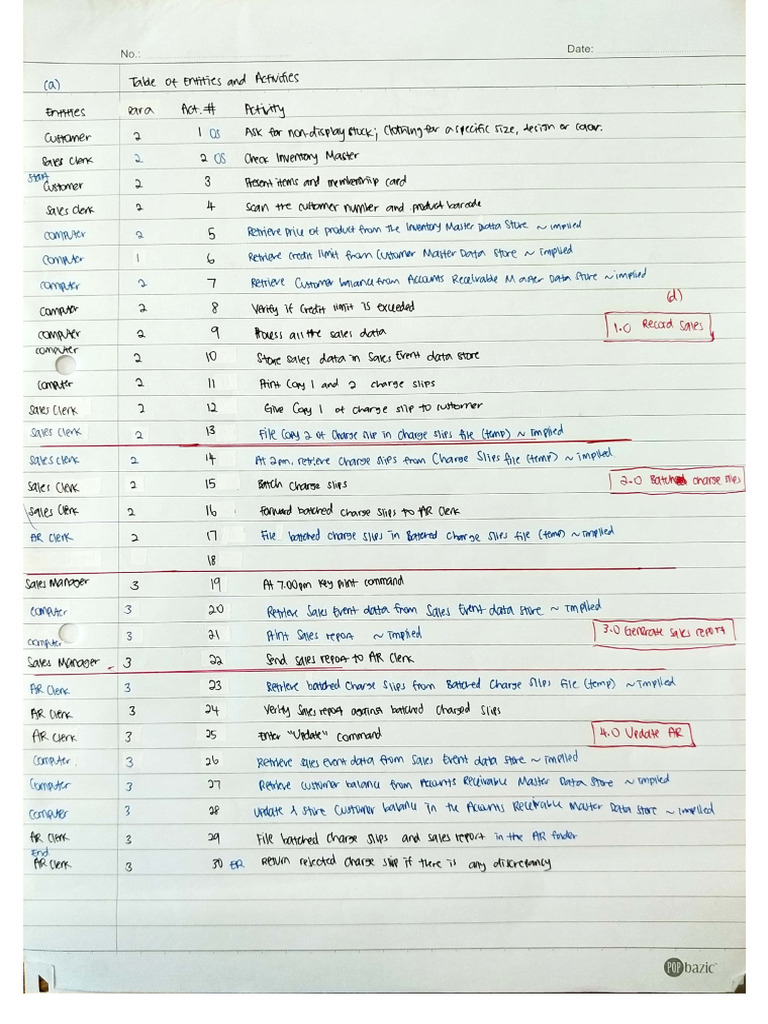 No.: Date:
(a) Table of Entities and Activities
Entities Para Act.# Activity
Customer 2 1 OS Ask for non-display stock; clothing for a specific size, design or color.
Sales Clerk 2 2 OS Check Inventory Master
Start
Customer 2 3 Present items and membership card
Sales Clerk 2 4 Scan the customer number and product barcode
Computer 2 5 Retrieve price of product from the Inventory Master Data Store ~ implied
Computer 1 6 Retrieve credit limit from Customer Master Data Store ~ Implied
Computer 2 7 Retrieve Customer balance from Accounts Receivable Master Data Store ~ implied
(d)
Computer 2 8 Verify if Credit limit is exceeded
1.0 Record Sales
Computer 2 9 Process all the sales data
Computer 2 10 Store sales data in Sales Event data store
Computer 2 11 Print Copy 1 and 2 charge slips
Sales Clerk 2 12 Give Copy 1 of charge slip to customer
Sales Clerk 2 13 File Copy 2 of Charge slip in charge slips file (temp) ~ Implied
Sales clerk 2 14 At 2pm, retrieve charge slips from Charge Slips file (temp) ~ implied
2.0 Batched charge slips
Sales Clerk 2 15 Batch charge slips
Sales Clerk 2 16 Forward batched charge slips to AR Clerk
AR Clerk 2 17 File batched charge slips in Batched Charge slips file (temp) ~ Implied
18
Sales Manager 3 19 At 7.00pm key print command
Computer 3 20 Retrieve Sales Event data from Sales Event data store ~ Implied
Computer 3 21 Print Sales report ~ Implied
3.0 Generate Sales report
Sales Manager 3 22 Send sales report to AR Clerk
AR Clerk 3 23 Retrieve batched charge slips from Batched Charge Slips file (temp) ~ Implied
AR Clerk 3 24 Verify Sales report against batched Charged slips
AR Clerk 3 25 Enter "Update" command
4.0 Update AR
Computer 3 26 Retrieve sales event data from Sales Event data store ~ Implied
Computer 3 27 Retrieve customer balance from Accounts Receivable Master Data Store ~ Implied
Computer 3 28 Update & store Customer balance in the Accounts Receivable Master Data Store ~ Implied
AR Clerk 3 29 File batched charge slips and sales report in the AR folder
End
AR Clerk 3 30 ER Return rejected charge slip if there is any discrepancy
POP bazic